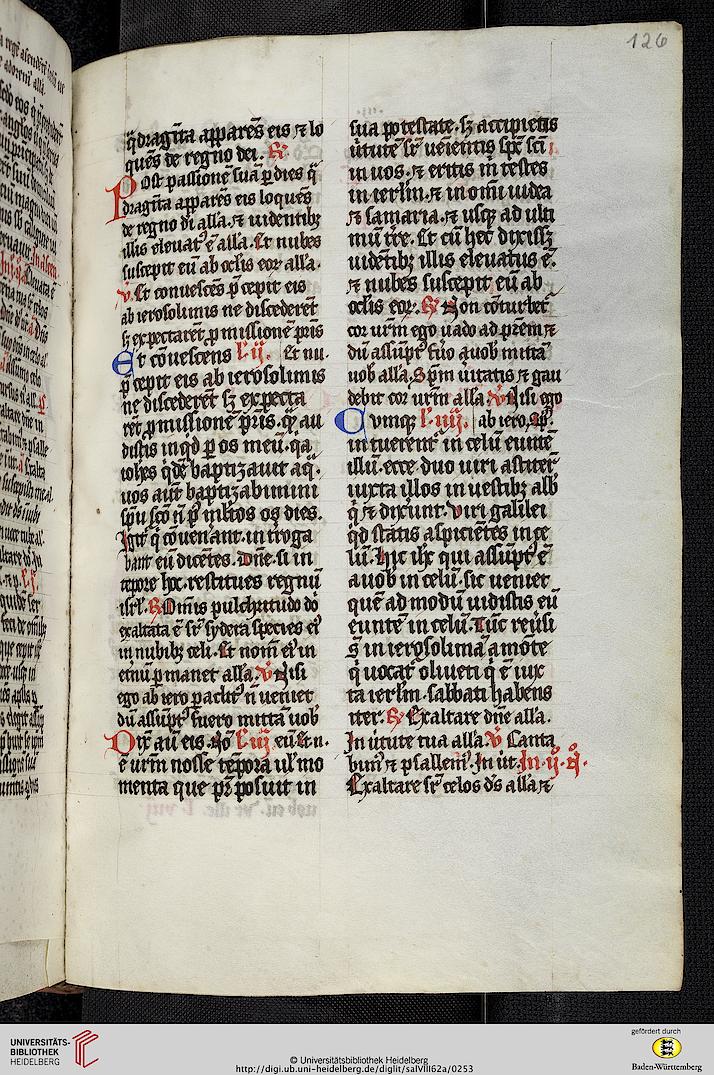 126
q̄dragīta apparēs eis ⁊ lo
quēs de regno dei. R̷
Post passionē suā p̱ dies q̄
dragīta apparēs eis loquēs
de regno dī alla. ⁊ uidentibꝫ
illis eleuat᷒ ē alla. Et nubes
suscepit eū ab oclis eoꝝ alla.
v̷. Et conuescēs p̄cepit eis
ab ierosolimis ne discederēt
sꝫ expectarēt p̱missionē pr̄is
Et cōuescens l'.ij. Et nu.
p̄cepit eis ab ierosolimis
ne discederēt sꝫ expecta
rēt p̱missionē pr̄is. q̄ȝ au
distis inq̄d p̱ os meū. q̄a
iohēs q̄dē baptizauit aq̄.
uos aūt baptizabimini
sp̄u scō n̄ p᷒ ml̄tos os dies.
Igit᷒ q̄ cōuenāt. introga
bant eū dicētes. Dn̄e. si in
tēpore hoc. restitues regnū
isrl'. R̷ Omīs pulchritudo dō
exaltata ē sr̄ sydera species ei᷒
in nubibꝫ celi. Et nomē ei᷒ in
etn̄ū p̱manet alla v̷ Nisi
ego ab iero paclit᷒ n̄ ueniet
dū assūpt᷒ fuero mittā uob̄
Dix aū eis. Nō l'.iij. eū Et n.
ē urm̄ nosse tēpora ul' mo
menta que pr̄ posuit in
sua potestate. sꝫ accipietis
uirtutē sr̄ ueīentis sp̄c sc̄i
in uos. ⁊ eritis m̄ testes
in ierlm̄. ⁊ in omī iudea
⁊ samaria. ⁊ usqꝫ ad ulti
mū tr̄e. Et cū hec dixissꝫ
uidētibꝫ illis eleuatus ē.
⁊ nubes suscepit eū ab
oclis eoꝝ. R̷ Non cōturbet᷒
cor urm̄ ego uado ad pr̄em ⁊
dū assūpt᷒ fuo a uob̄ mittā
uob̄ alla. Sp̄m ūitatis ⁊ gau
debit cor urm̄ alla. v̷ Nisi ego
Cumqꝫ l'.iiij. ab iero.
intuerent᷒ in celū euntē
illū. ecce duo uiri astiter᷒
iuxta illos in uestibꝫ alb̄
q̄ ⁊ dixunt. Viri galilei
q̄d statis aspiciētes in ce
lū. Hic ihc̄ qui assūpt᷒ ē
a uob̄ in celū. sic ueniet
quē ad modū uidistis eū
euntē in celū. Tūc reūsi
s̄ in ierosolimā a mōte
q̄ uocat᷒ oliueti q̄ ē iux
ta ierlm̄. sabbati habens
iter. R̷ Exaltare dn̄e alla.
In uirtute tua alla. v̷ Canta
bim᷒ ⁊ psallem᷒. In ūt. In. ij. n̊.
Exaltare sr̄ celos ds̄ alla ⁊
UNIVERSITÄTS-
BIBLIOTHEK
HEIDELBERG
© Universitätsbibliothek Heidelberg
http://digi.ub.uni-heidelberg.de/diglit/salVIII62a/0253
gefördert durch
Baden-Württemberg